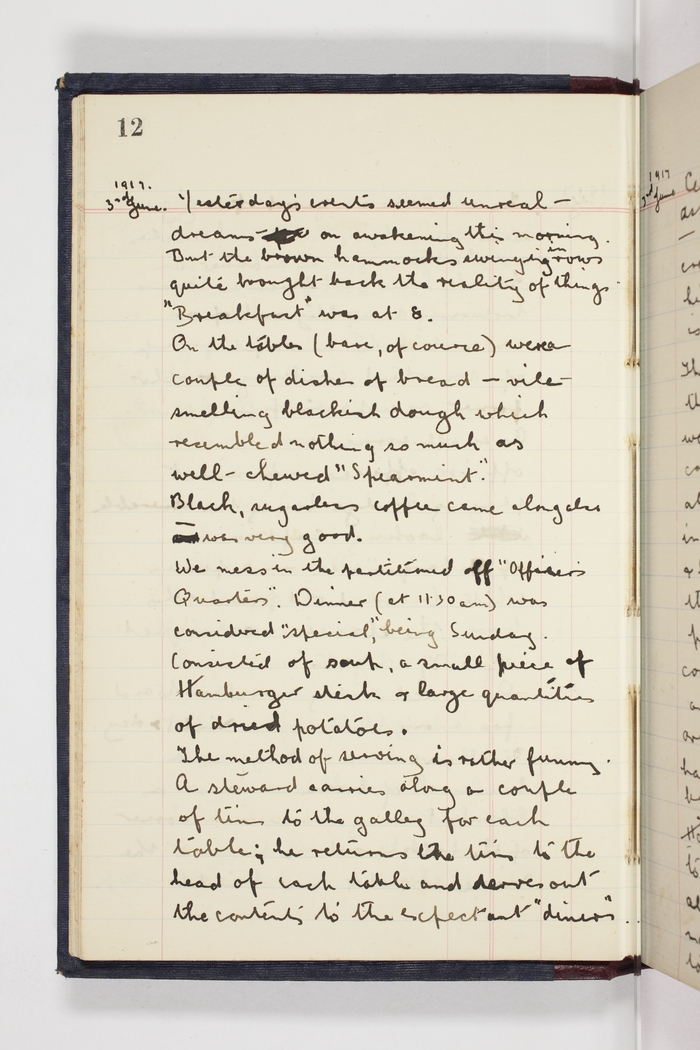 12
1917.
3rd June. Yesterday's events seemed unreal —
dreams on awakening this morning.
But the brown hammocks swinging in rows
quite brought back the reality of things.
"Breakfast" was at 8.
On the tables (bare, of course) were a
couple of dishes of bread — vile
smelling blackish dough which
resembled nothing so much as
well-chewed "Spearmint".
Black, sugarless coffee came along also
was very good.
We mess in the partitioned off "Officers
Quarters". Dinner (at 11.30 am) was
considered "special", being Sunday.
Consisted of soup, a small piece of
Hamburger steak & large quantities
of dried potatoes.
The method of serving is rather funny.
A steward carries along a couple
of tins to the galley for each
table; he returns the tins to the
head of each table and serves out
the contents to the expectant "diners".
1917
3rd June